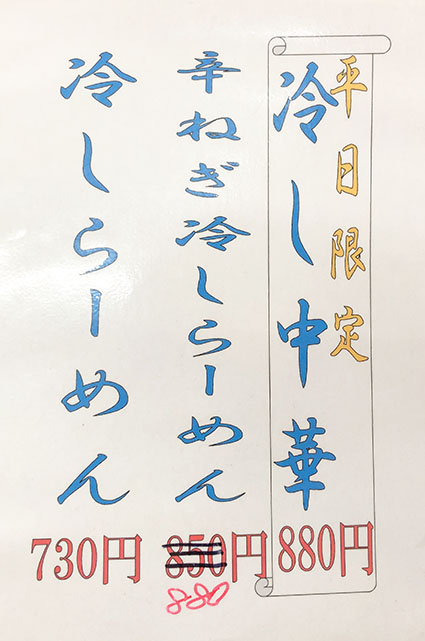 平日限定
冷し中華
880円
辛ねぎ冷しらーめん
850円
880
冷しらーめん
730円